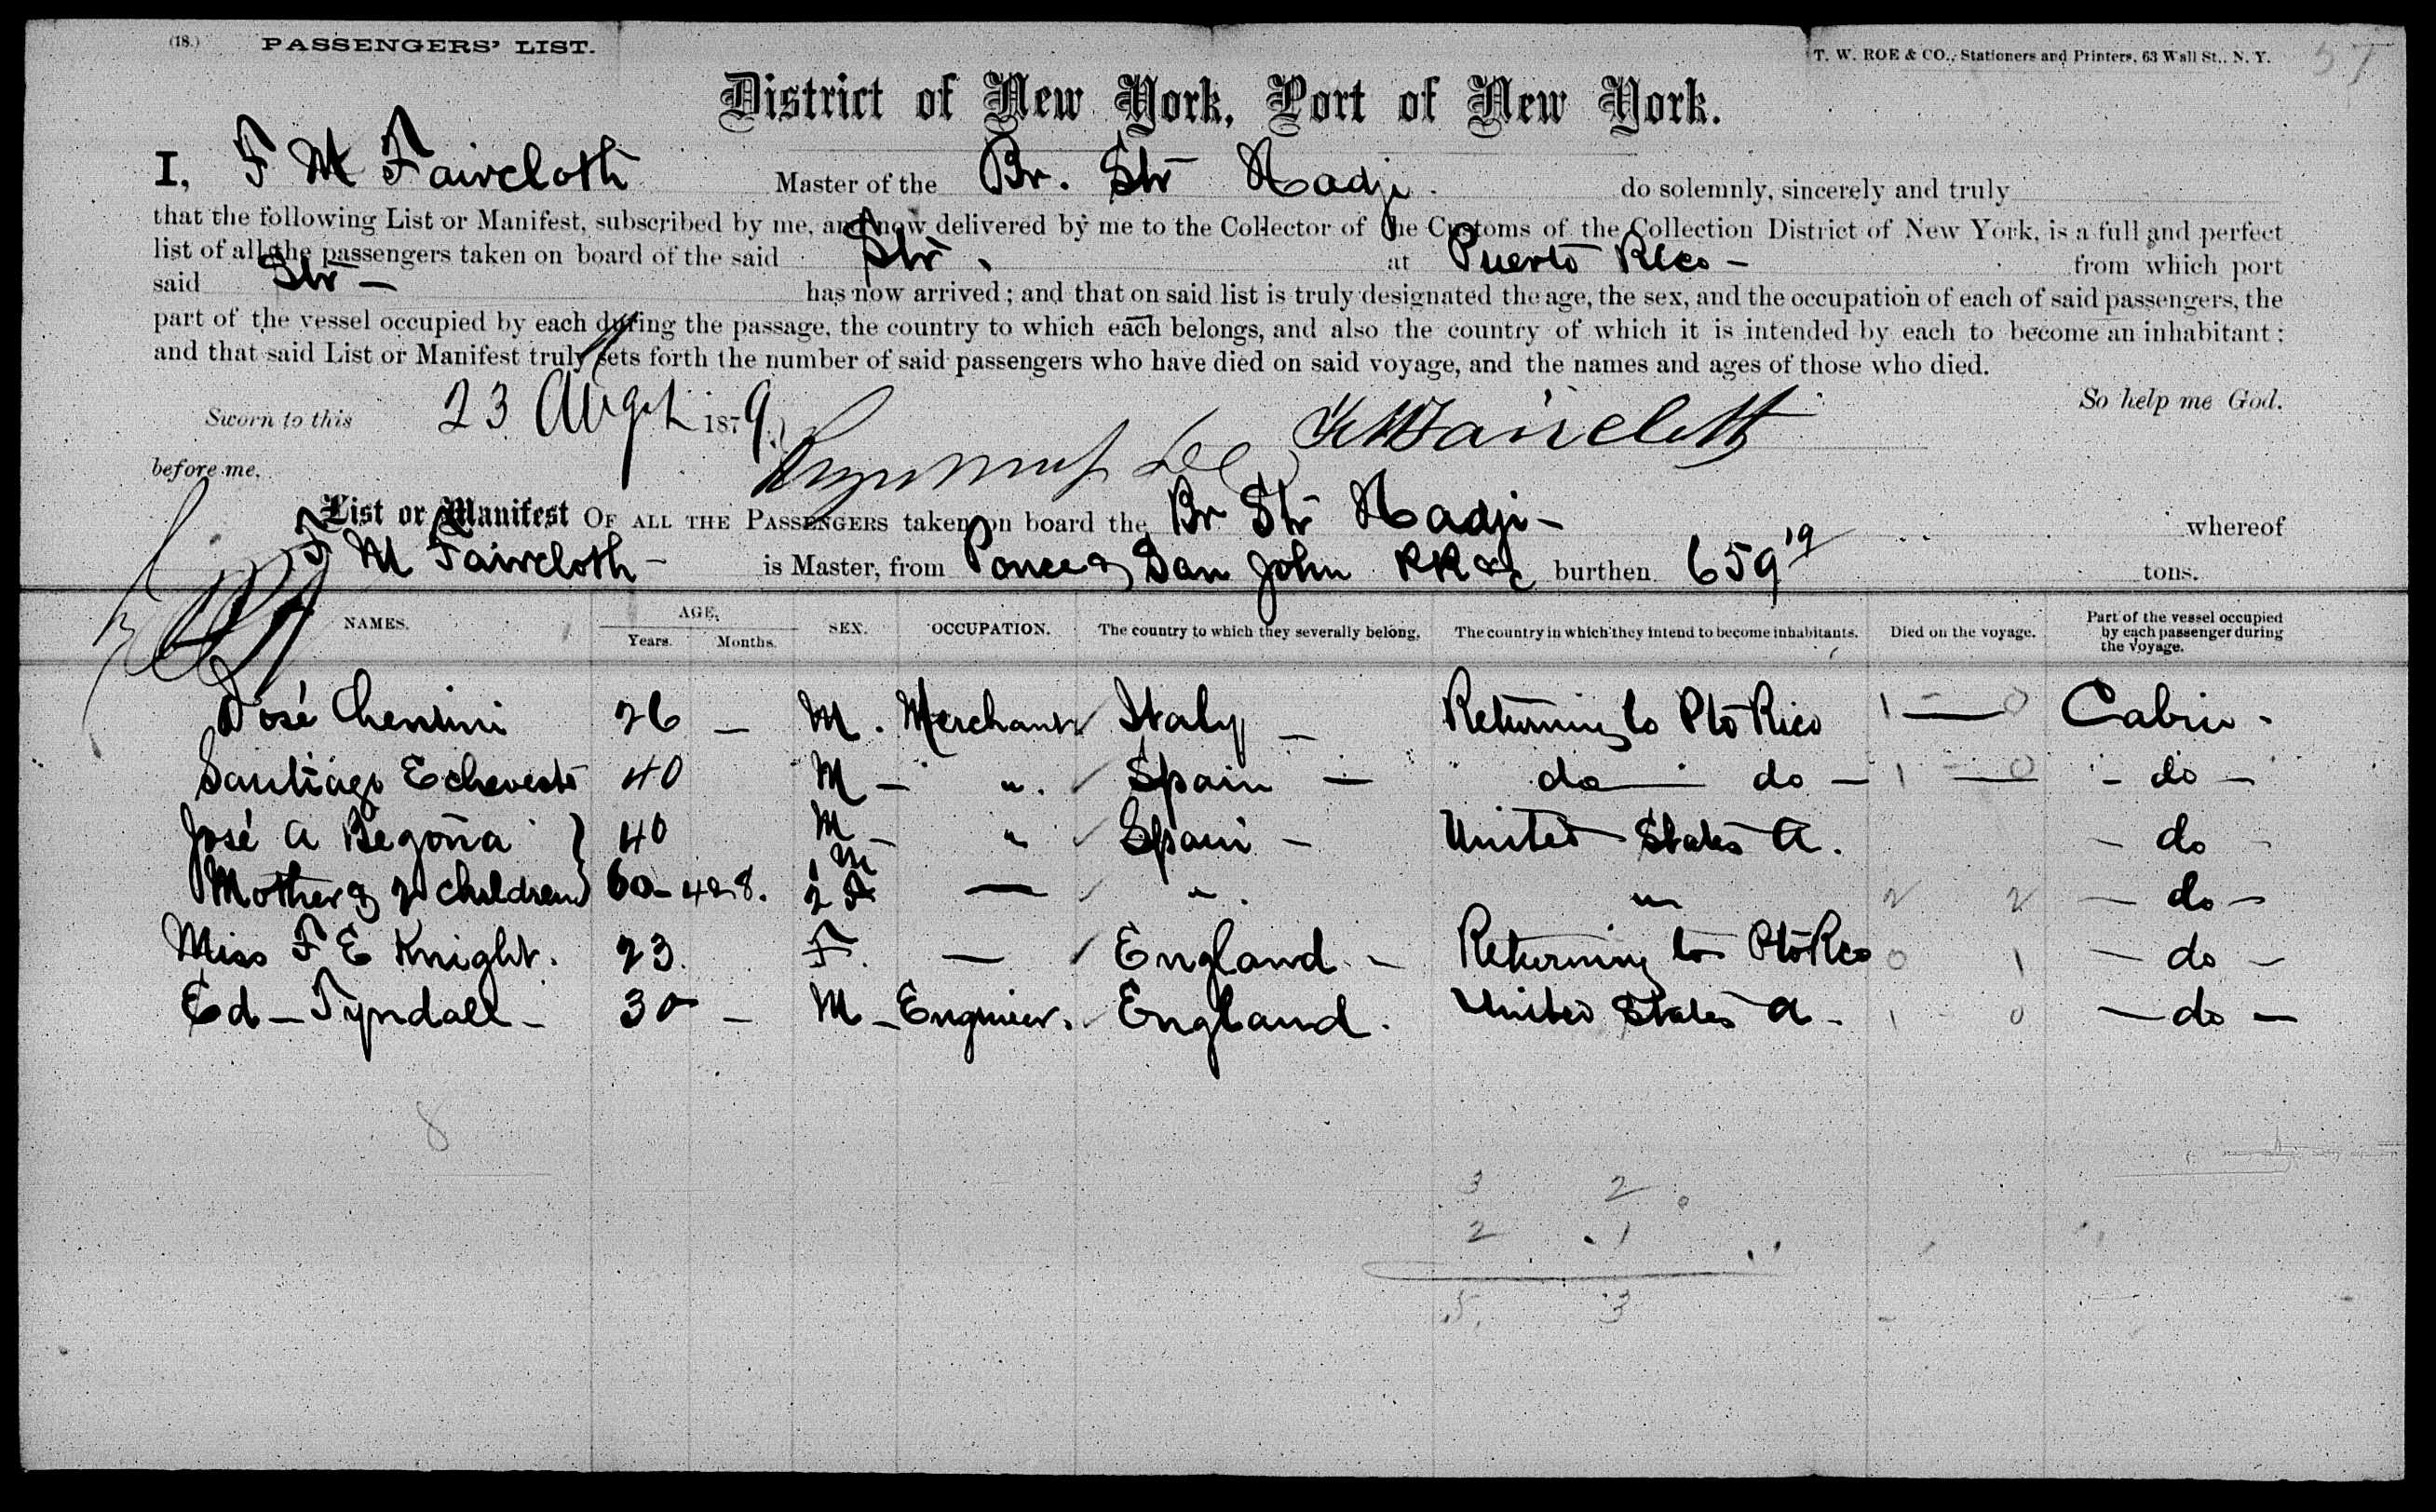 (18.) PASSENGERS' LIST.
T. W. ROE & CO., Stationers and Printers, 63 Wall St., N. Y. 57
District of New York, Port of New York.
I, F M Faircloth Master of the Br. Str Hadji. do solemnly, sincerely and truly
that the following List or Manifest, subscribed by me, and now delivered by me to the Collector of the Customs of the Collection District of New York, is a full and perfect
list of all the passengers taken on board of the said Str. at Puerto Rico - from which port
said Str - has now arrived; and that on said list is truly designated the age, the sex, and the occupation of each of said passengers, the
part of the vessel occupied by each during the passage, the country to which each belongs, and also the country of which it is intended by each to become an inhabitant;
and that said List or Manifest truly sets forth the number of said passengers who have died on said voyage, and the names and ages of those who died.
So help me God.
Sworn to this 23 Augst 1879. F M Faircloth
before me,
List or Manifest OF ALL THE PASSENGERS taken on board the Br Str Hadji - whereof
F M Faircloth - is Master, from Ponce & San John burthen 659 19 tons.
NAMES. AGE, Years. Months. SEX. OCCUPATION. The country to which they severally belong. The country in which they intend to become inhabitants. Died on the voyage. Part of the vessel occupied by each passenger during the voyage.
José 26 - M. Merchant Italy - Returning to Pto Rico 1 - 0 Cabin -
Santiago 40 M - " . Spain - do - do - 1 - 0 - do -
José A Begoña } 40 M - " Spain - United States A. - do -
Mother & 2 children } 60 - 4 & 8. 1 M 2 F - " . " 2 2 - do -
Miss F E Knight. 23. F. - England - Returning to Pto Rico 0 1 - do -
Ed - Tyndall - 30 - M - Engineer. England. United States A - 1 - 0 - do -
8
3 2
2 1
5 3